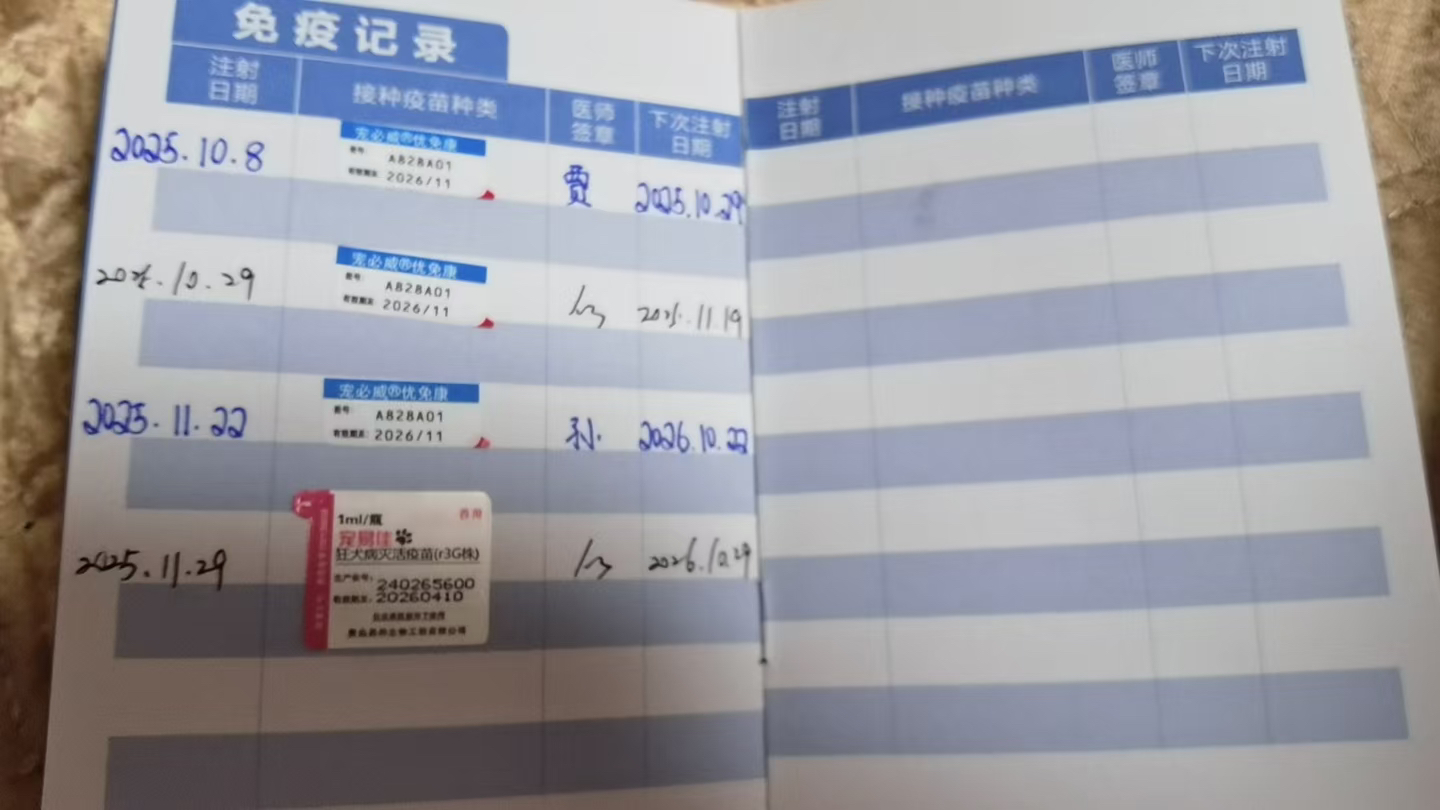 免疫记录
注射日期 接种疫苗种类 医师签章 下次注射日期
2025.10.8 宠必威®优免康 贾 2025.10.29
批号: A828A01
有效期至: 2026/11
2025.10.29 宠必威®优免康 2025.11.19
批号: A828A01
有效期至: 2026/11
2025.11.22 宠必威®优免康 孙 2026.10.22
批号: A828A01
有效期至: 2026/11
1ml/瓶
宠易佳
狂犬病灭活疫苗(r3G株)
2025.11.29 2026.10.29
生产批号: 240265600
有效期至: 20260410
注射日期 接种疫苗种类 医师签章 下次注射日期